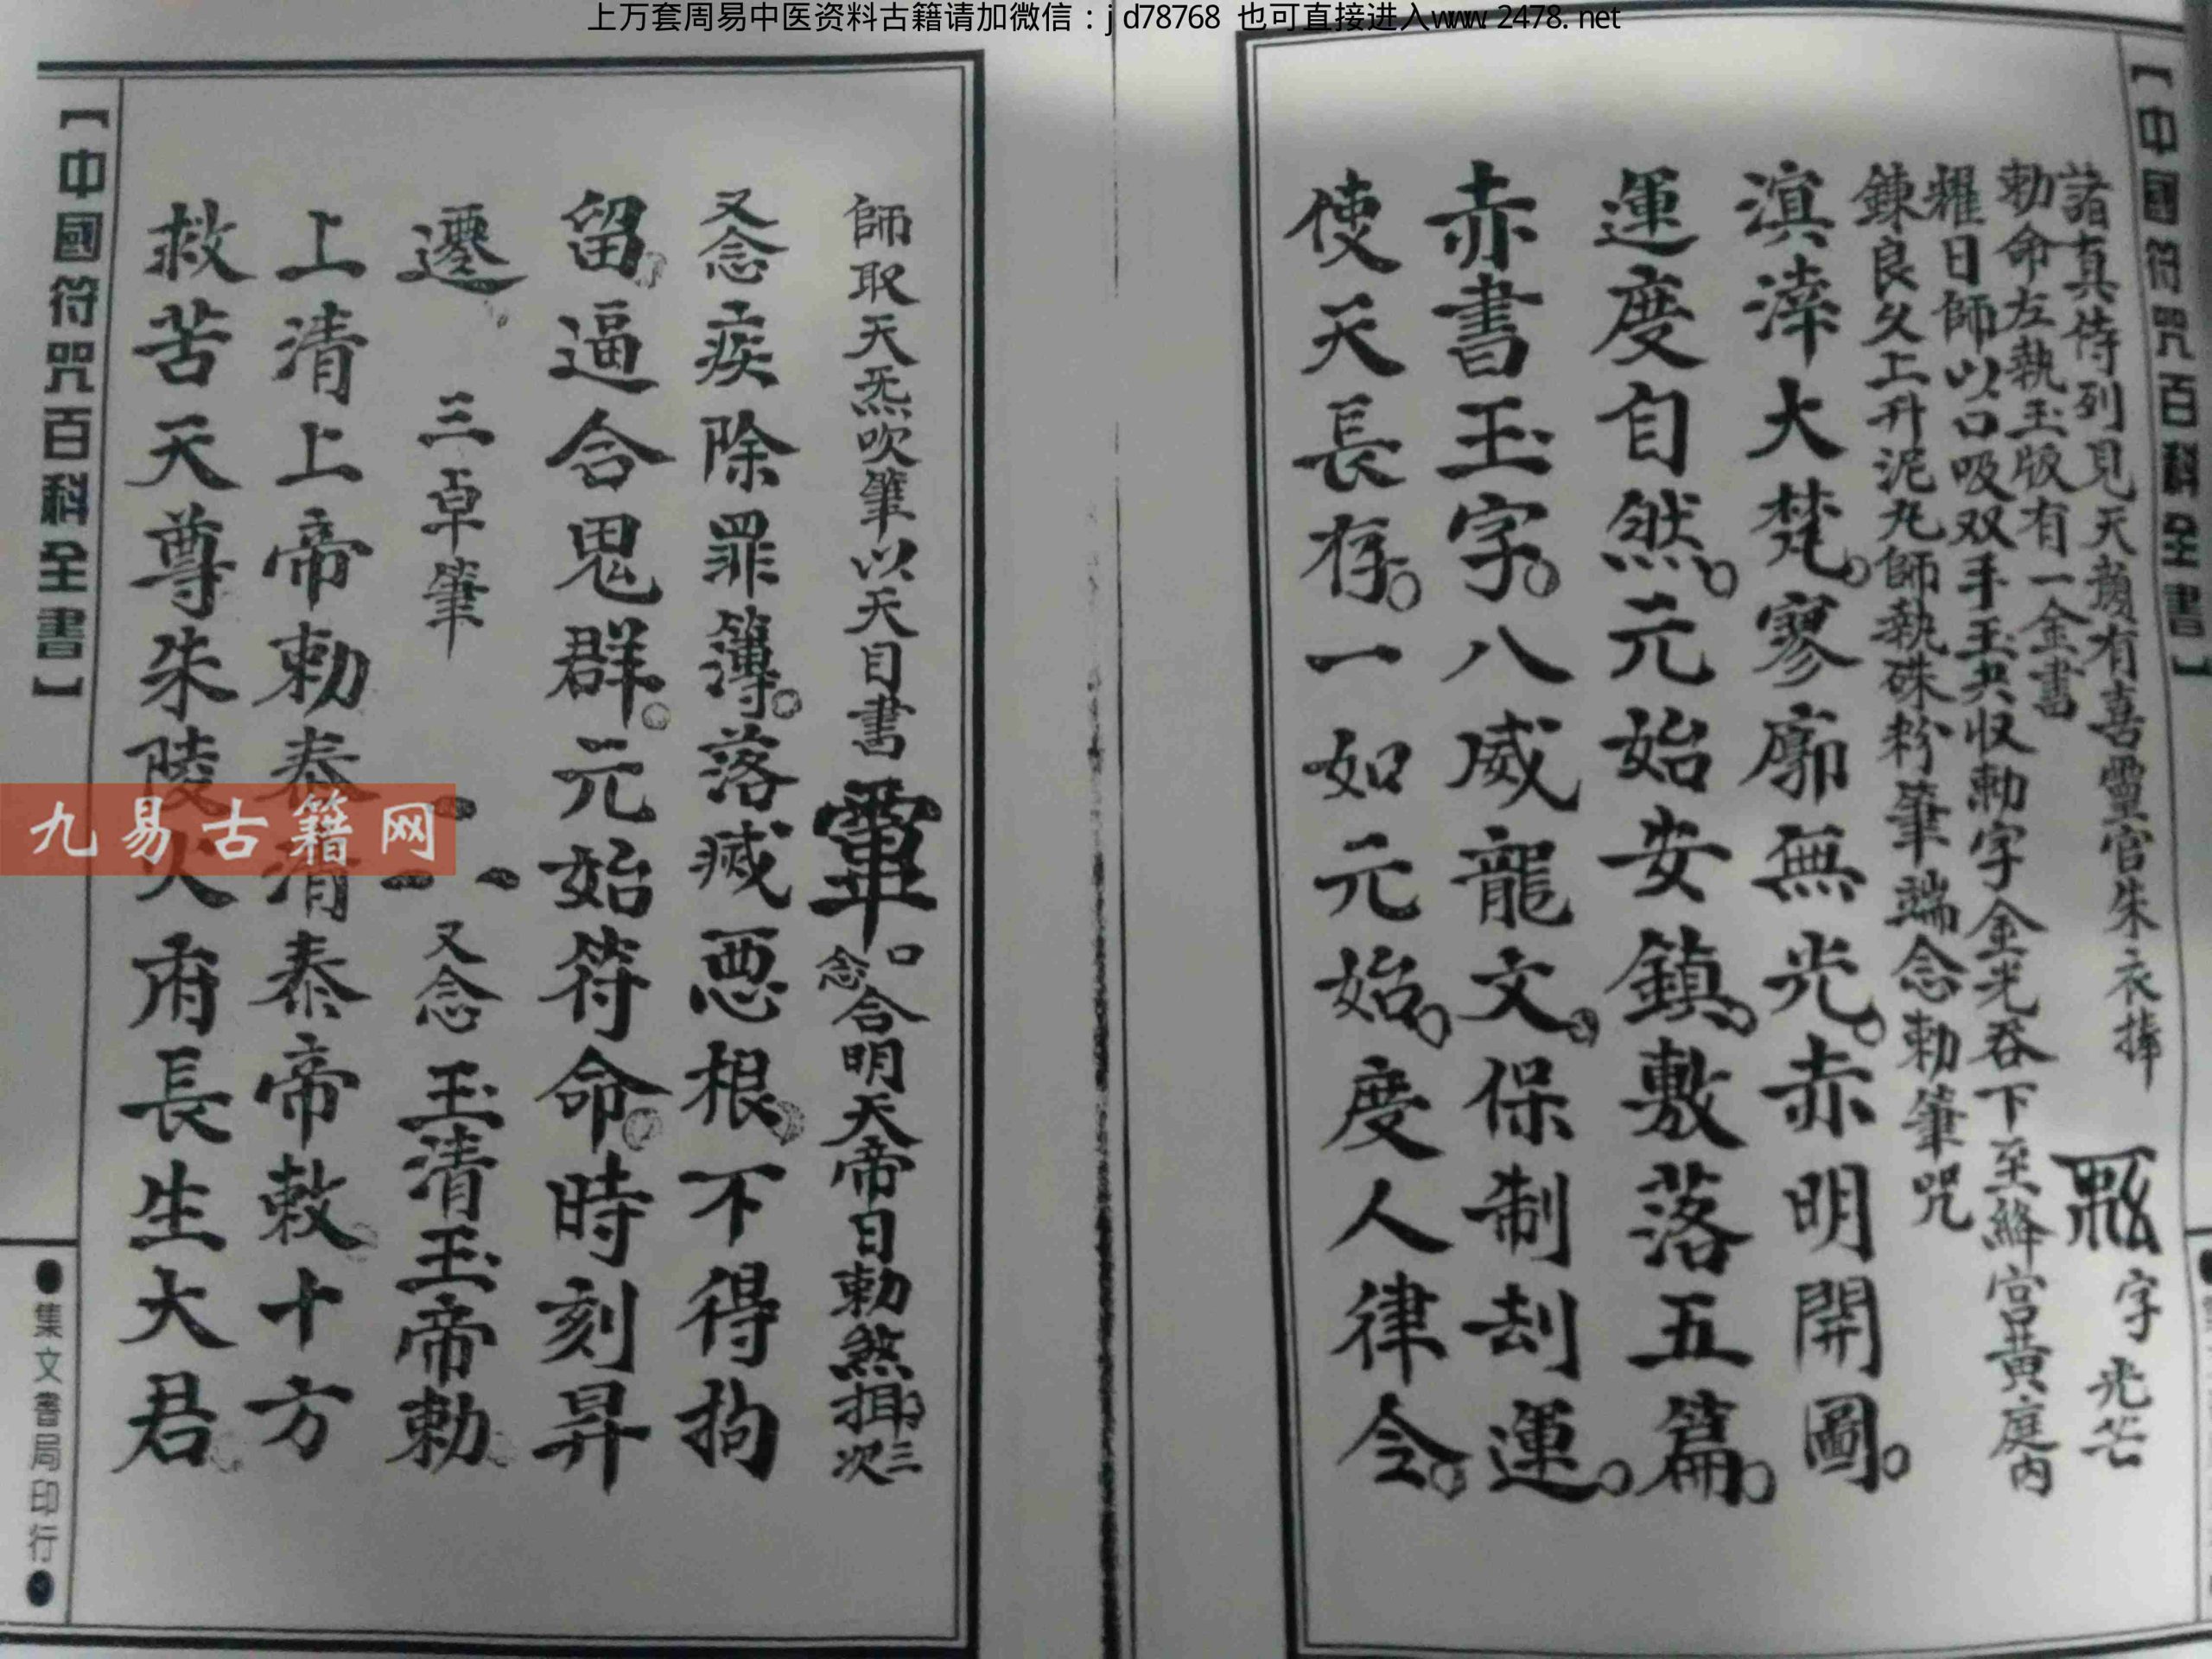 上万套周易中医资料古籍请加微信：jd78768 也可直接进入www.2478.net
【中國符咒百科全書】
諸真侍列見天顏有喜靈官朱衣捧 字光芒
勅命左執玉版有一金書
糶日師以口吸双手玉共收勅字金光吞下至絳宮黃庭內
鍊良久上升泥丸師執硃粉筆端念勅筆咒
溟涬大梵。寥廓無光。赤明開圖。
運度自然。元始安鎮。敷落五篇。
赤書玉字。八威龍文。保制刼運。
使天長存。一如元始。度人律令。
師取天炁吹筆以天目書 口念合明天帝日勅煞揖三次
又念疾除罪簿。落滅惡根。不得拘
留。逼合鬼群。元始符命。時刻昇
遷。三卓筆 又念 玉清玉帝勅
上清上帝勅泰清泰帝敕十方
救苦天尊朱陵火府長生大君
【中國符咒百科全書】
●集文書局印行●
九易古籍网